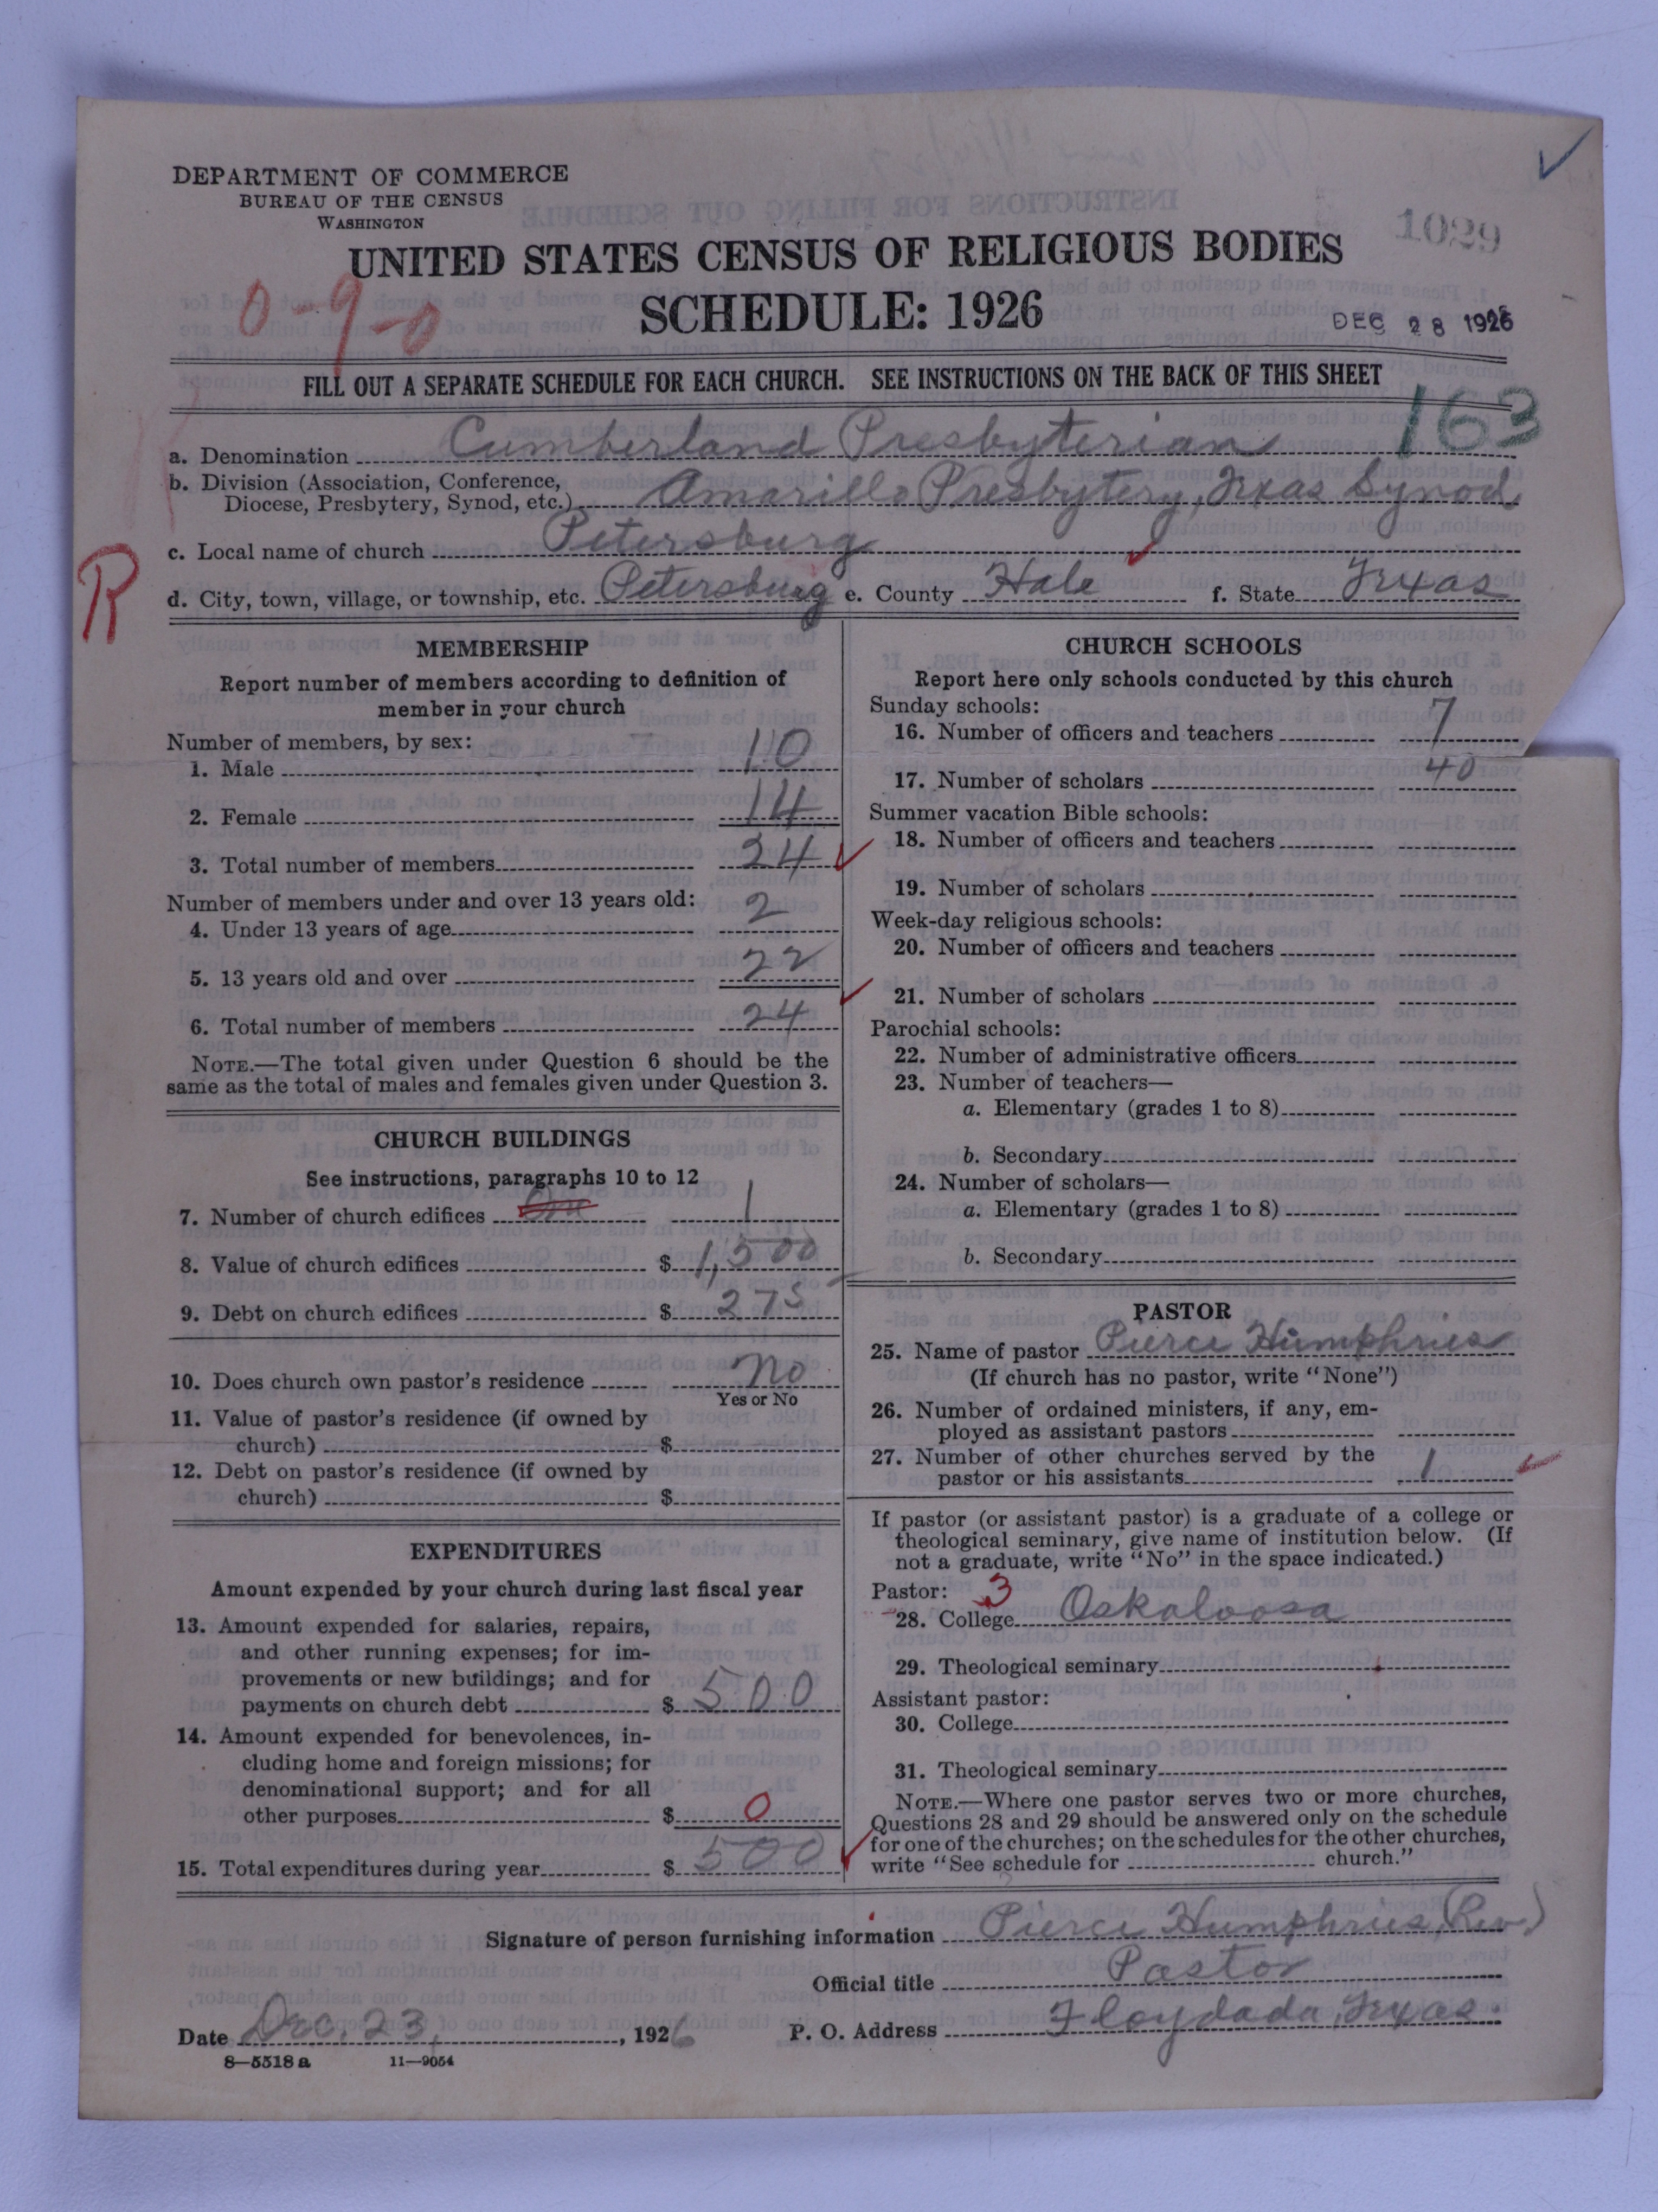 DEPARTMENT OF COMMERCE
BUREAU OF THE CENSUS
WASHINGTON
1029
UNITED STATES CENSUS OF RELIGIOUS BODIES
0-9-0
SCHEDULE: 1926
DEC 28 1926
FILL OUT A SEPARATE SCHEDULE FOR EACH CHURCH. SEE INSTRUCTIONS ON THE BACK OF THIS SHEET
163
a. Denomination Cumberland Presbyterian
b. Division (Association, Conference,
Diocese, Presbytery, Synod, etc.) Amarillo Presbytery, Texas Synod
c. Local name of church Petersburg
R
d. City, town, village, or township, etc. Petersburg e. County Hale f. State Texas
MEMBERSHIP
Report number of members according to definition of
member in your church
Number of members, by sex:
1. Male 10
2. Female 14
3. Total number of members 24
Number of members under and over 13 years old:
4. Under 13 years of age 2
5. 13 years old and over 22
6. Total number of members 24
NOTE.—The total given under Question 6 should be the
same as the total of males and females given under Question 3.
CHURCH BUILDINGS
See instructions, paragraphs 10 to 12
7. Number of church edifices One 1
8. Value of church edifices $ 1,500
9. Debt on church edifices $ 275
10. Does church own pastor's residence No
Yes or No
11. Value of pastor's residence (if owned by
church) $
12. Debt on pastor's residence (if owned by
church) $
EXPENDITURES
Amount expended by your church during last fiscal year
13. Amount expended for salaries, repairs,
and other running expenses; for im-
provements or new buildings; and for
payments on church debt $ 500
14. Amount expended for benevolences, in-
cluding home and foreign missions; for
denominational support; and for all
other purposes $ 0
15. Total expenditures during year $ 500
CHURCH SCHOOLS
Report here only schools conducted by this church
Sunday schools:
16. Number of officers and teachers 7
17. Number of scholars 40
Summer vacation Bible schools:
18. Number of officers and teachers
19. Number of scholars
Week-day religious schools:
20. Number of officers and teachers
21. Number of scholars
Parochial schools:
22. Number of administrative officers
23. Number of teachers—
a. Elementary (grades 1 to 8)
b. Secondary
24. Number of scholars—
a. Elementary (grades 1 to 8)
b. Secondary
PASTOR
25. Name of pastor Pierce Humphries
(If church has no pastor, write "None")
26. Number of ordained ministers, if any, em-
ployed as assistant pastors
27. Number of other churches served by the
pastor or his assistants 1
If pastor (or assistant pastor) is a graduate of a college or
theological seminary, give name of institution below. (If
not a graduate, write "No" in the space indicated.)
Pastor: 3
28. College Oskaloosa
29. Theological seminary
Assistant pastor:
30. College
31. Theological seminary
NOTE.—Where one pastor serves two or more churches,
Questions 28 and 29 should be answered only on the schedule
for one of the churches; on the schedules for the other churches,
write "See schedule for church."
Signature of person furnishing information Pierce Humphries, (Rev.)
Official title Pastor
Date Dec. 23, 1926 P. O. Address Floydada, Texas.
8—5518 a 11—9054